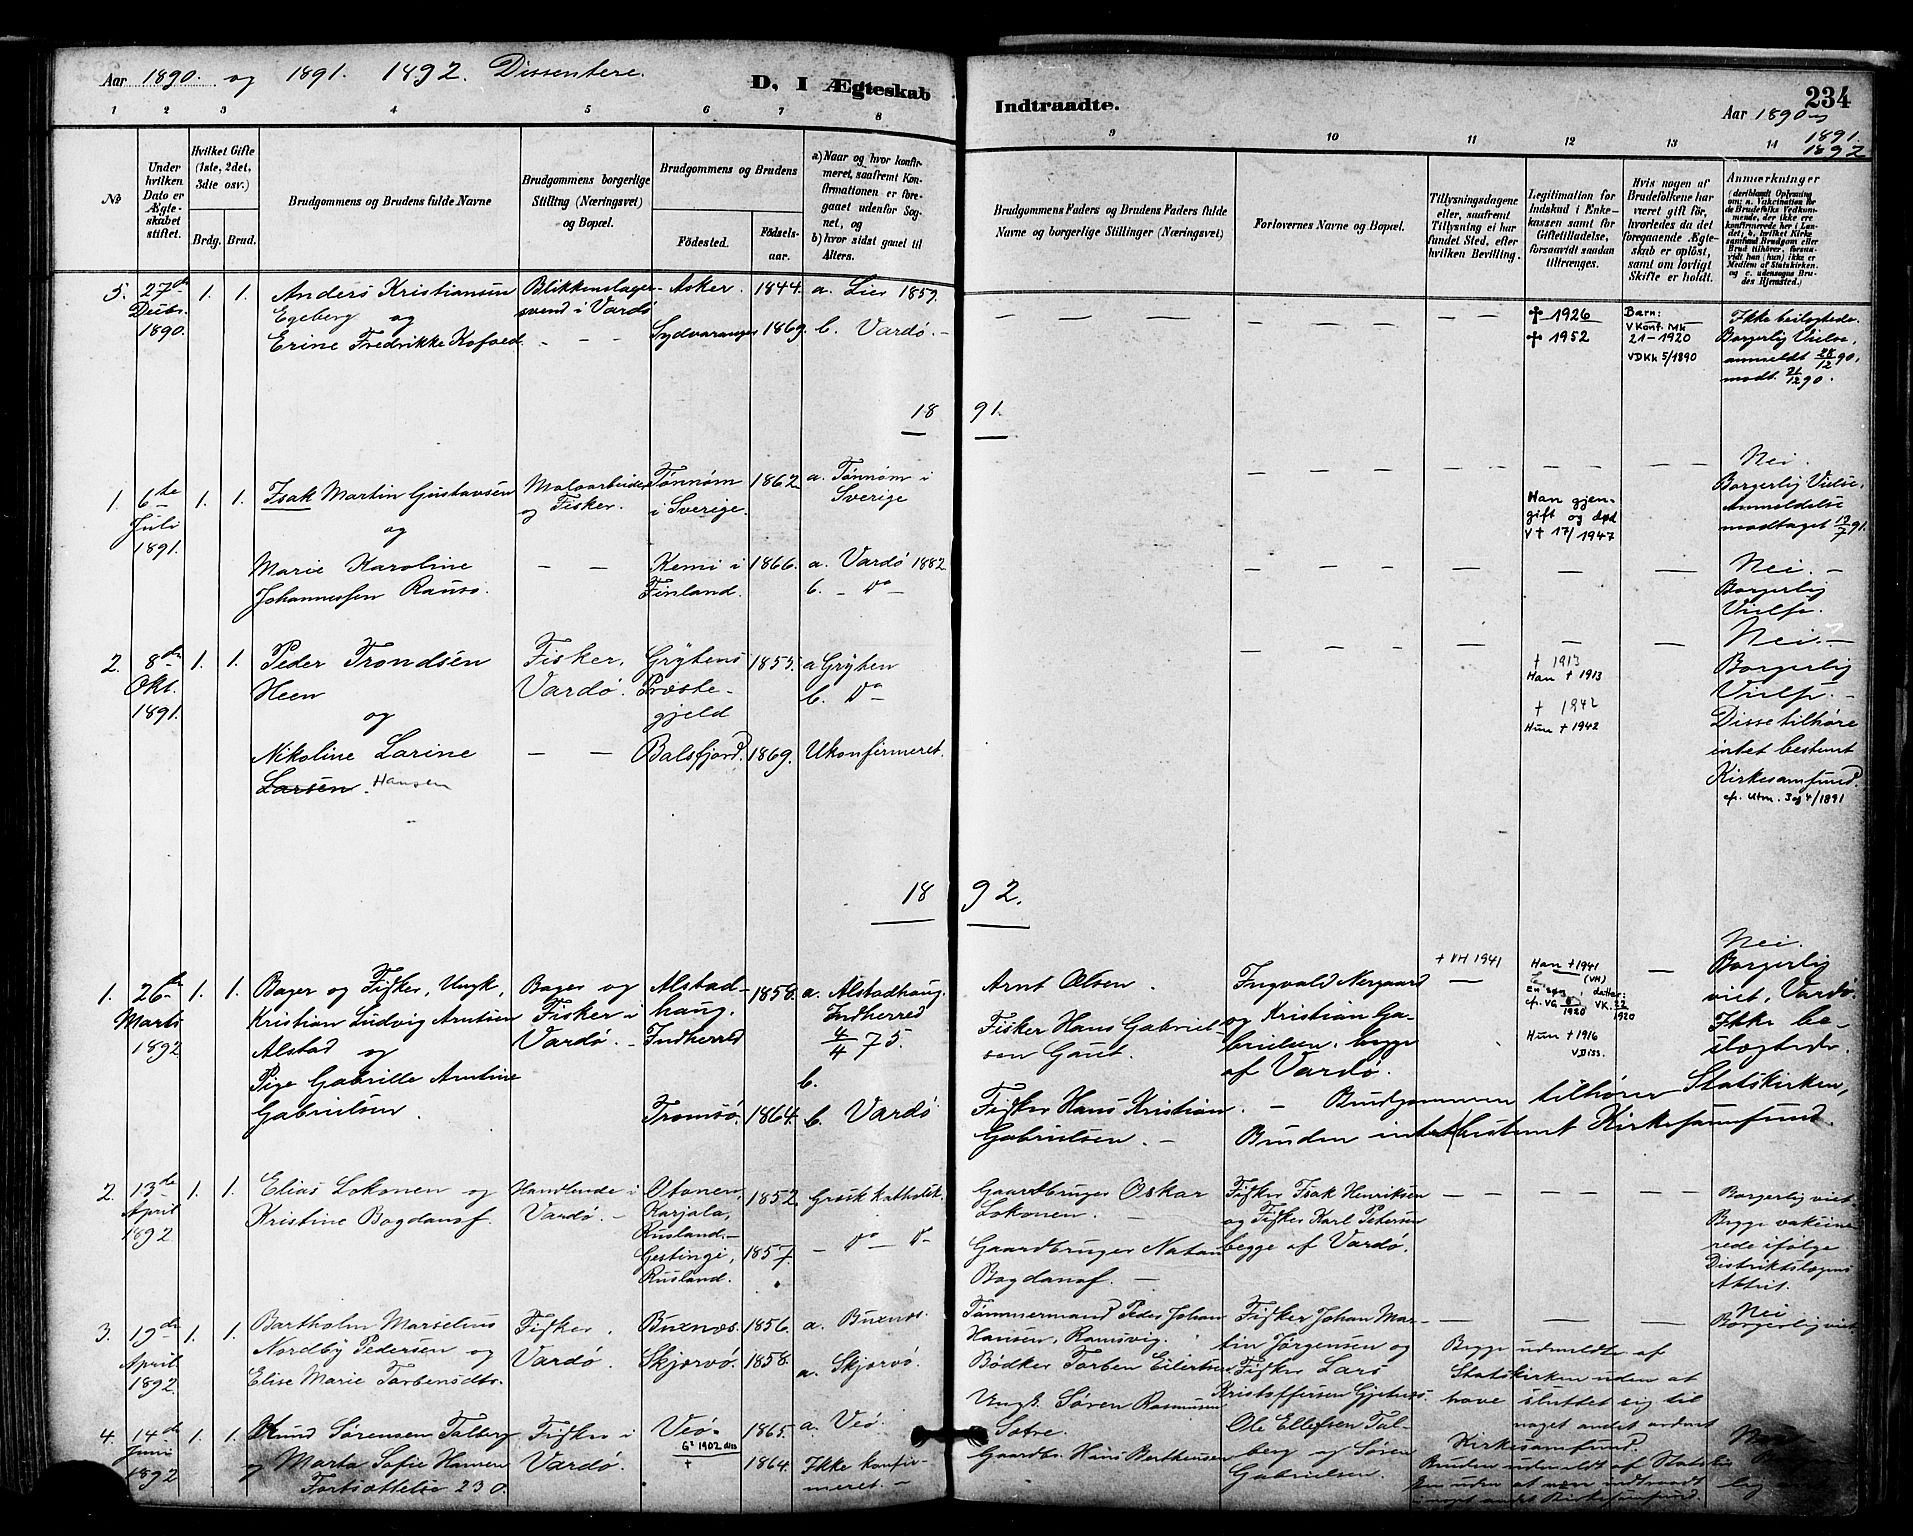 Aar 1890. og 1891. 1892. Dissentere.
D, I Ægteskab
Indtraadte.
234
Aar 1890 og
1891.
1892
1 2 3 4 5 6 7 8 9 10 11 12 13 14
No
Under hvilken Dato er Ægteskabet stiftet.
Hvilket Gifte (1ste, 2det, 3die osv.)
Brdg. Brud.
Brudgommens og Brudens fulde Navne
Brudgommens borgerlige Stilling (Næringsvei) og Bopæl.
Brudgommens og Brudens
Fødested.
Fødselsaar.
a) Naar og hvor konfirmeret, saafremt Konfirmationen er foregaaet udenfor Sognet, og
b) hvor sidst gaaet til Alters.
Brudgommens Faders og Brudens Faders fulde Navne og borgerlige Stillinger (Næringsvei)
Forlovernes Navne og Bopæl.
Tillysningsdagene eller, saafremt Tillysning ei har fundet Sted, efter hvilken Bevilling.
Legitimation for Indskud i Enkekassen samt for Giftetilladelse, forsaavidt saadan tiltrænges.
Hvis nogen af Brudefolkene har været gift før, hvorledes da det foregaaende Ægteskab er opløst, samt om lovligt Skifte er holdt.
Anmærkninger
5. 27de Decbr. 1890.
1. 1.
Anders Kristiansen
Egeberg og
Erine Fredrikke Kofoed
Blikkenslagersvend i Vardø
Asker. 1844. a. Lier 1859.
Sydvaranger 1869. b. Vardø.
1926
1952
Barn:
V Konf. Mk
21-1920
VDKh 5/1890
Ikke beslægtede.
Borgerlig Vielse,
anmeldt 28/12 90,
modt. 31/12 90.
18 91.
1. 6te Juli 1891.
1. 1.
Isak Martin Gustavsen
og
Marie Karoline
Johannessen Rauso.
Malaarbeider
og Fisker.
Tønnøm
i Sverige.
1862
a. Tønnøm i
Sverige
Kemi i
Finland.
1866.
a. Vardø 1882
b. Do
Han gjengift og død
V † 17/1947
Nei.
Borgerlig Vielse.
Anmeldelse
modtaget 12/7 91.
Nei.
Borgerlig
Vielse.
2. 8de Okt. 1891.
1. 1.
Peder Trondsen
Heen
og
Nikoline Larine
Larsen. Hansen
Fisker,
Vardø.
Grytens
Præstegjeld
1855.
a Gryten
b. Do
Balsfjord. 1869. Ukonfirmeret.
† 1913
Han † 1913
† 1942
Hun † 1942
Nei.
Borgerlig
Vielse.
Disse tilhøre
intet bestemt
Kirkesamfund.
cfr. Utm. 3 og 4/1891
18 92.
1. 26de Marts 1892
1. 1.
Bager og Fisker, Ungk.
Kristian Ludvig Arntsen
Alstad og
Pige Gabrille Arntine
Gabrielsen.
Bager og
Fisker i
Vardø.
Alstadhaug.
Indherred
1858.
a. Alstadhaug.
Indherred
4/4 75.
b.
Tromsø. 1864. b. Vardø
Arnt Olsen.
Fisker Hans Gabrielsen Gaut.
Fisker Hans Kristian
Gabrielsen.
Ingvald Nergaard
og Kristian Gabrielsen, begge
af Vardø.
† VH 1941
Han † 1941
(VH)
Hun † 1916
VDiss.
Brudgommen tilhører Statskirken,
Bruden intet bestemt Kirkesamfund.
Nei.
Borgerlig
viet, Vardø.
Ikke beslægtede.
2. 13de April 1892
1. 1.
Elias Lokonen og
Kristine Bogdanof.
Handlende i
Vardø.
Utonen,
Karjala,
Rusland.
1852. Græsk katholsk.
Gestingi,
Rusland.
1857. Do
Gaardbruger Oskar
Lokonen.
Gaardbruger Natan
Bogdanof.
Fisker Isak Henriksen
og Fisker Karl Petersen
begge af Vardø.
Borgerlig viet.
Begge vaccinerede ifølge
Distriktslægens
Attest.
3. 19de April 1892.
1. 1.
Bartholm Marselius
Nordby Pedersen og
Elise Marie Torbensdtr.
Fisker,
Vardø.
Buxnæs. 1856. a. Buxnæs.
Skjærvø. 1858. a. Skjærvø.
Tømmermand Peder Johan
Hansen, Ramsvig.
Bødker Torben Eilertsen
Fisker Johan Martin Jørgensen og
Fisker Lars
Kristoffersen Gjetnes.
Begge udmeldte af
Statskirken uden at
have sluttet sig til
noget andet ordnet
Kirkesamfund.
Nei
Borgerlig viet.
4. 14de Juni 1892
1. 1.
Knud Sørensen Talberg
og Marta Sofie Hansen
Fortsættelse 230.
Fisker i
Vardø.
Veø. 1865. a. Veø.
G² 1902 diss
†
1864. Ikke konfirmeret.
Ungk. Søren Rasmussen
Sætre.
Gaardbr. Hans Berthensen
Ole Ellefsen Talberg og Søren
Gabrielsen.
Bruden udmeldt af Statskirken uden at være indtraadt
i noget andet Kirkesamfund.
Nei